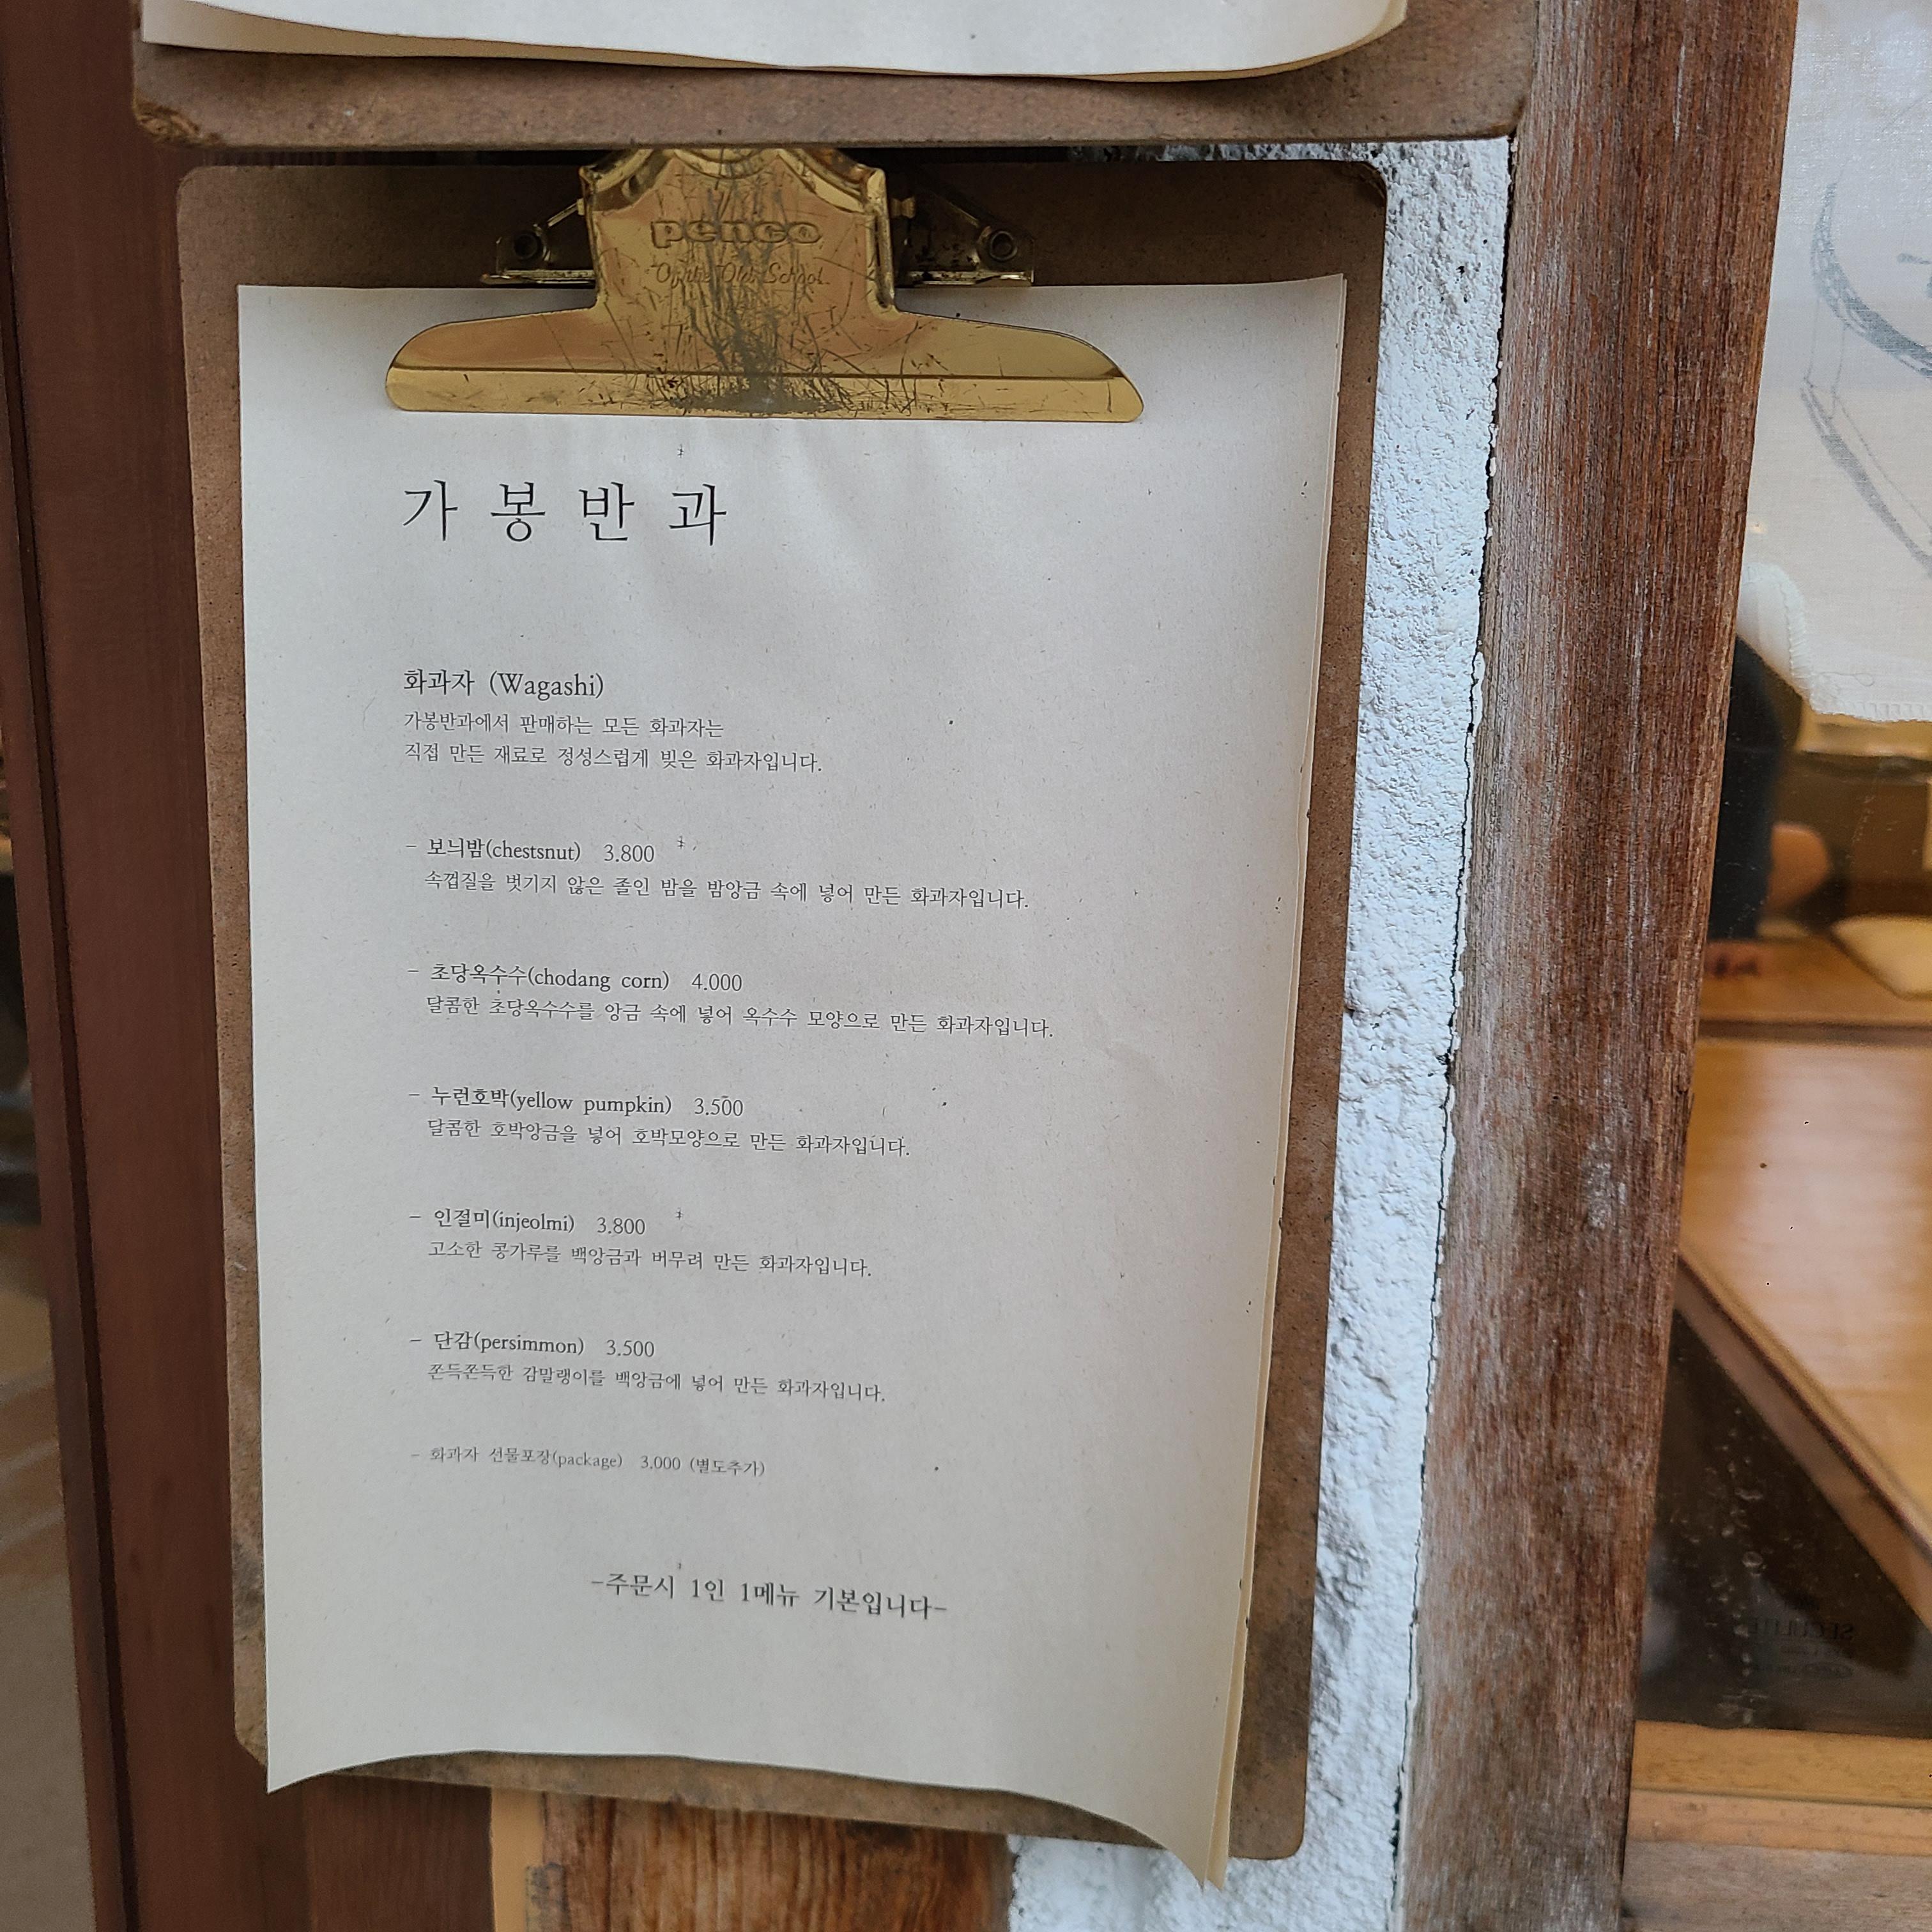 penco
가봉반과
화과자 (Wagashi)
가봉반과에서 판매하는 모든 화과자는
직접 만든 재료로 정성스럽게 빚은 화과자입니다.
- 보늬밤(chestsnut) 3.800
속껍질을 벗기지 않은 졸인 밤을 밤앙금 속에 넣어 만든 화과자입니다.
- 초당옥수수(chodang corn) 4.000
달콤한 초당옥수수를 앙금 속에 넣어 옥수수 모양으로 만든 화과자입니다.
- 누런호박(yellow pumpkin) 3.500
달콤한 호박앙금을 넣어 호박모양으로 만든 화과자입니다.
- 인절미(injeolmi) 3.800
고소한 콩가루를 백앙금과 버무려 만든 화과자입니다.
- 단감(persimmon) 3.500
쫀득쫀득한 감말랭이를 백앙금에 넣어 만든 화과자입니다.
- 화과자 선물포장(package) 3.000 (별도추가)
-주문시 1인 1메뉴 기본입니다-